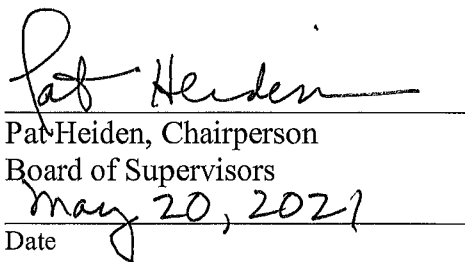 Pat Heiden
Pat Heiden, Chairperson
Board of Supervisors
May 20, 2021
Date